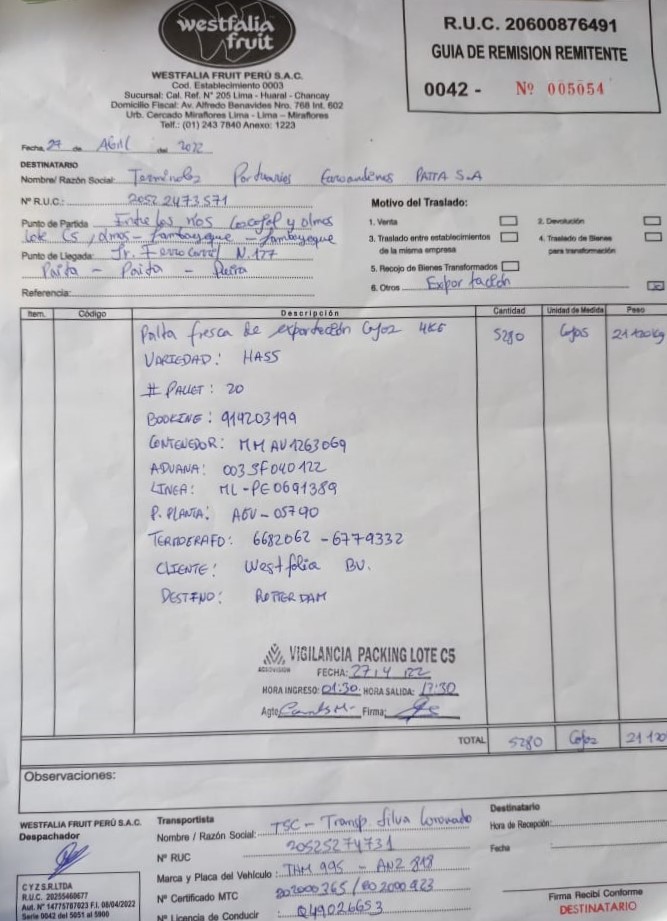 westfalia
fruit
WESTFALIA FRUIT PERÚ S.A.C.
Cod. Establecimiento 0003
Sucursal: Cal. Ref. N° 205 Lima - Huaral - Chancay
Domicilio Fiscal: Av. Alfredo Benavides Nro. 768 Int. 602
Urb. Cercado Miraflores Lima - Lima - Miraflores
Telf.: (01) 243 7840 Anexo: 1223
R.U.C. 20600876491
GUIA DE REMISION REMITENTE
0042 - Nº 005054
Fecha, 27 de Abril del 2022
DESTINATARIO
Nombre/ Razón Social: Terminales Portuarios PAITA S.A
N° R.U.C.: 20522473571
Punto de Partida Entre los ríos y olmos
Lote C5, olmos - Lambayeque - Lambayeque
Punto de Llegada: Jr. Ferrocarril N. 177
Paita - Paita - Piura
Referencia:
Motivo del Traslado:
1. Venta
2. Devolución
3. Traslado entre establecimientos
de la misma empresa
4. Traslado de Bienes
para transformación
5. Recojo de Bienes Transformados
6. Otros Exportación
Item. Código Descripción Cantidad Unidad de Medida Peso
Palta fresca de exportación Cajas 4KG 5280 Cajas 21120kg
VARIEDAD: HASS
# PALLET: 20
BOOKING: 919203199
CONTENEDOR: MMAU1263069
ADUANA: 003SF040122
LINEA: ML-PE0691389
P. PLANTA: AGU-05790
TERMOGRAFO: 6682062 - 6779332
CLIENTE: Westfalia BV.
DESTINO: ROTTERDAM
VIGILANCIA PACKING LOTE C5
AGROVISION
FECHA: 27/4/22
HORA INGRESO: 01:30 HORA SALIDA: 17:30
Agte Firma:
TOTAL 5280 Cajas 21120
Observaciones:
WESTFALIA FRUIT PERÚ S.A.C.
Despachador
CYZ S.R.LTDA
R.U.C. 20255460677
Aut. N° 14775787023 F.I. 08/04/2022
Serie 0042 del 5051 al 5900
Transportista
Nombre / Razón Social: TSC - Transp. Silva Coronado
N° RUC 20525274731
Marca y Placa del Vehículo: THM 995 - ANZ 818
N° Certificado MTC
N° Licencia de Conducir Q49026653
Destinatario
Hora de Recepción:
Fecha
Firma Recibí Conforme
DESTINATARIO